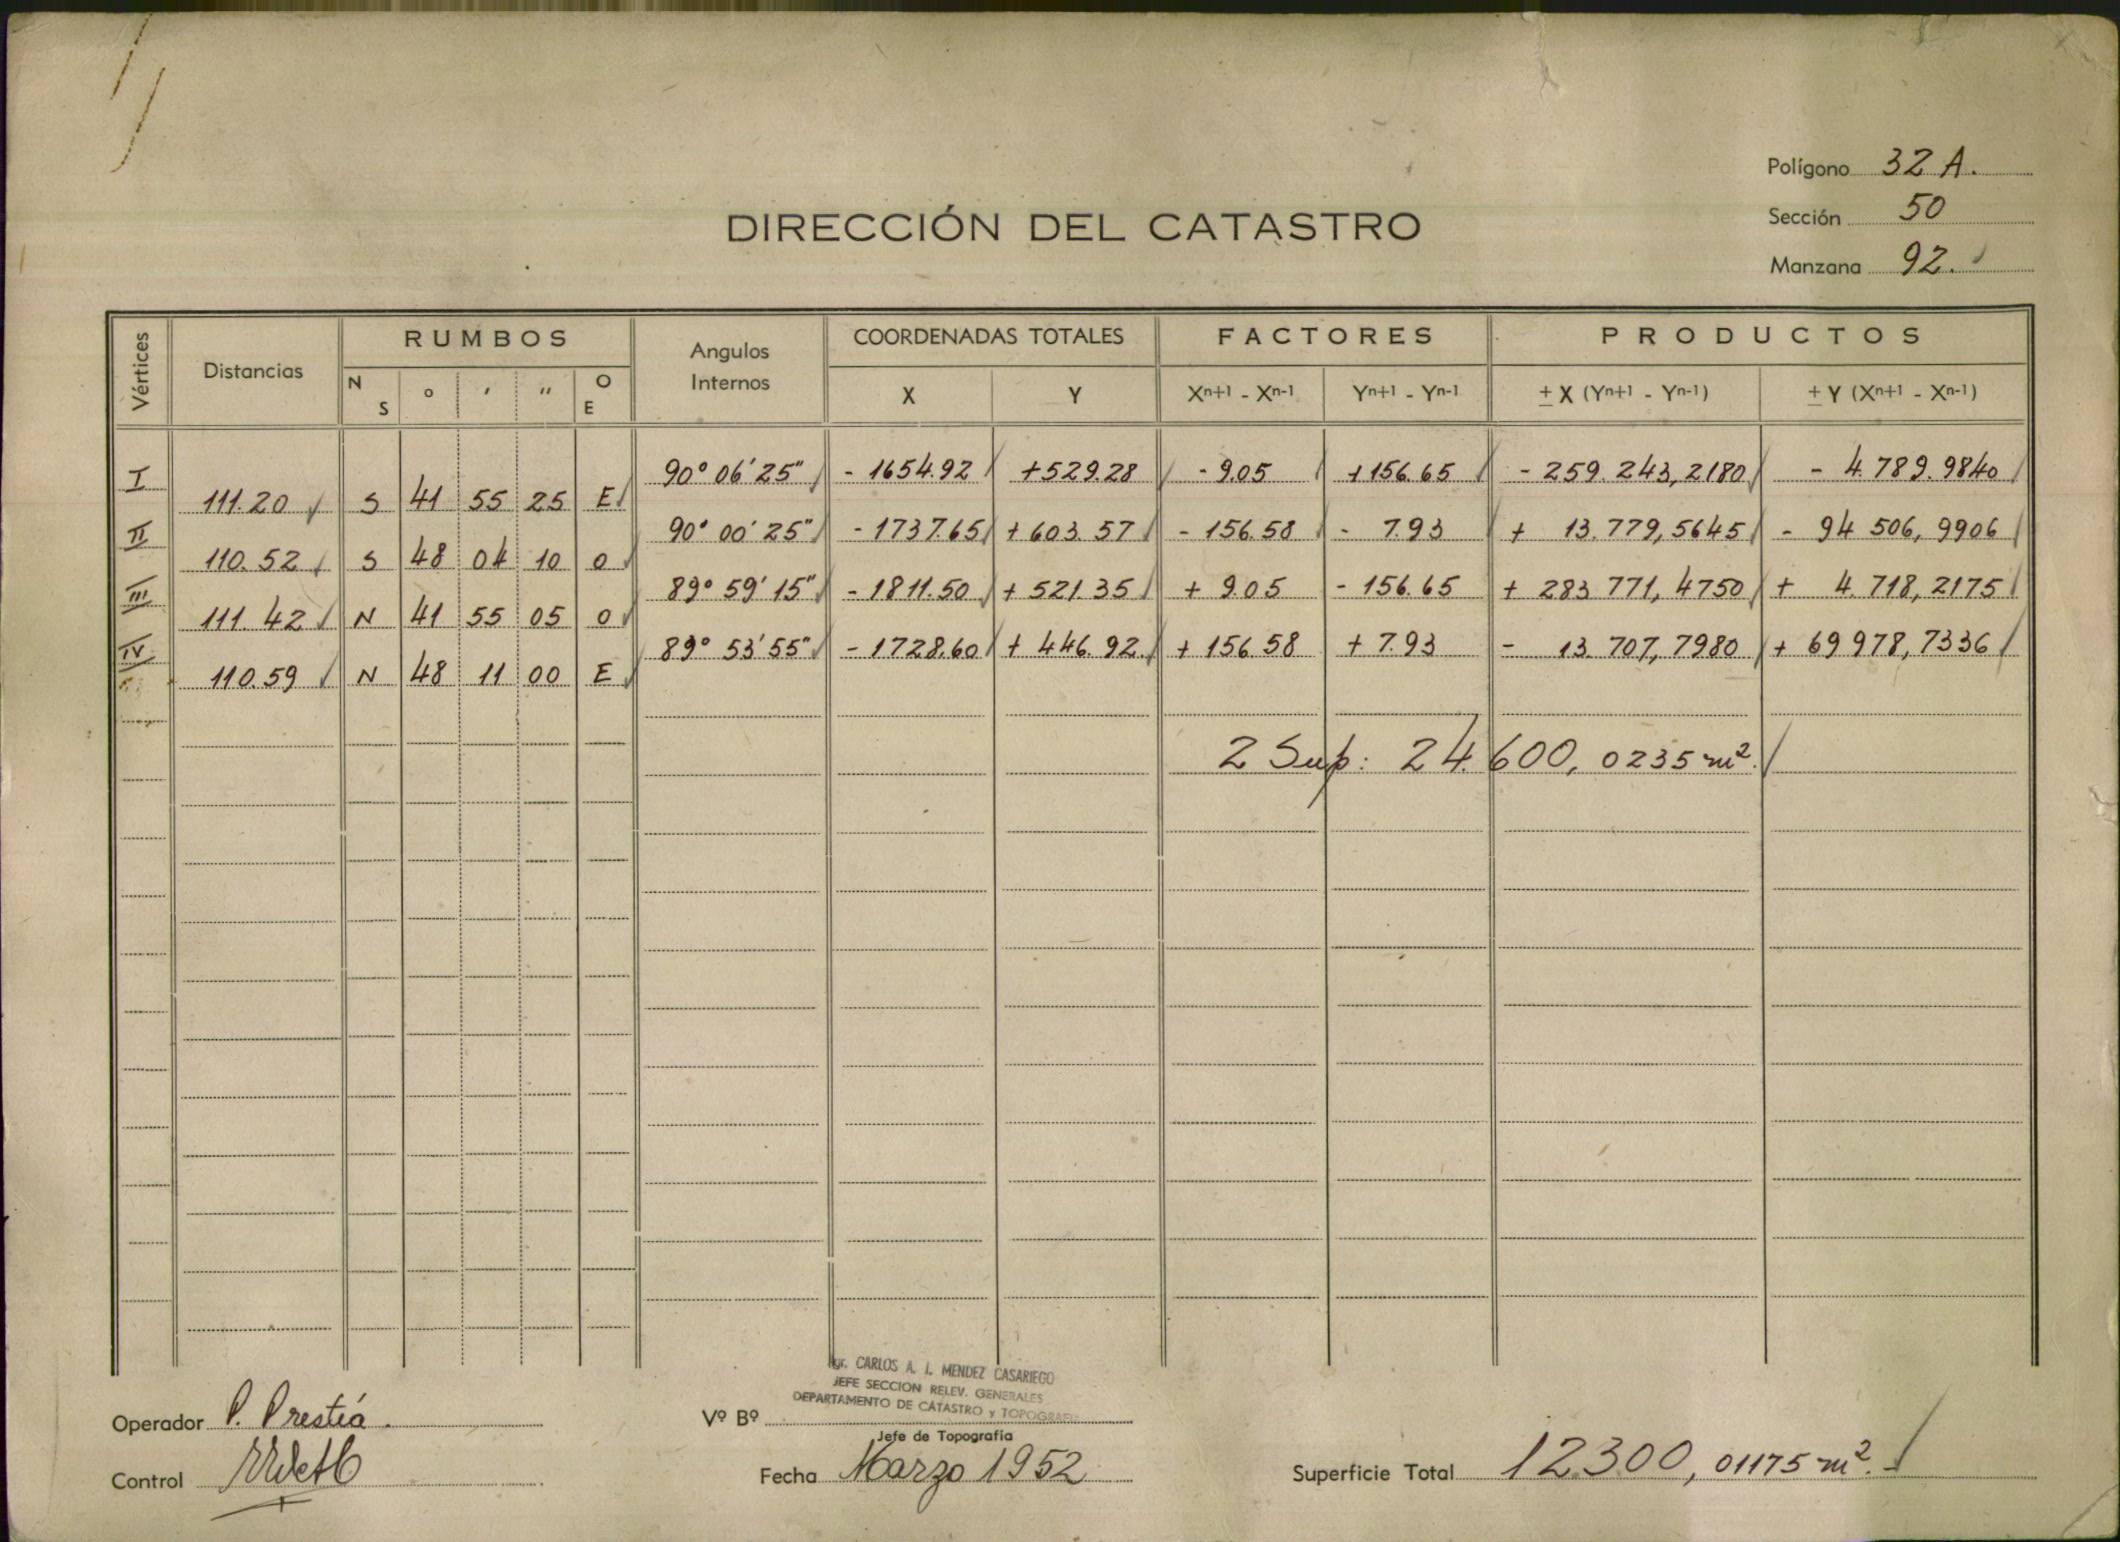 Polígono 32 A.
Sección 50
Manzana 92.
DIRECCIÓN DEL CATASTRO
Vértices Distancias RUMBOS Angulos Internos COORDENADAS TOTALES FACTORES PRODUCTOS
N S ° ' " O E X Y Xn+1 - Xn-1 Yn+1 - Yn-1 ± X (Yn+1 - Yn-1) ± Y (Xn+1 - Xn-1)
I 90° 06' 25" - 1654.92 +529.28 - 9.05 +156.65 - 259.243,2180 - 4.789.9840
111.20 S 41 55 25 E
II 90° 00' 25" - 1737.65 + 603.57 - 156.58 - 7.93 + 13.779,5645 - 94 506,9906
110.52 S 48 04 10 O
III 89° 59' 15" - 1811.50 + 521.35 + 9.05 - 156.65 + 283 771,4750 + 4.718,2175
111.42 N 41 55 05 O
IV 89° 53' 55" - 1728.60 + 446.92 + 156.58 + 7.93 - 13.707,7980 + 69 978,7336
110.59 N 48 11 00 E
2 Sup: 24.600,0235 m².
Agr. CARLOS A. I. MENDEZ CASARIEGO
JEFE SECCION RELEV. GENERALES
DEPARTAMENTO DE CATASTRO y TOPOGRAFIA
Operador P. Prestiá.
Vº Bº
Jefe de Topografia
Control
Fecha Marzo 1952
Superficie Total 12.300,01175 m².-